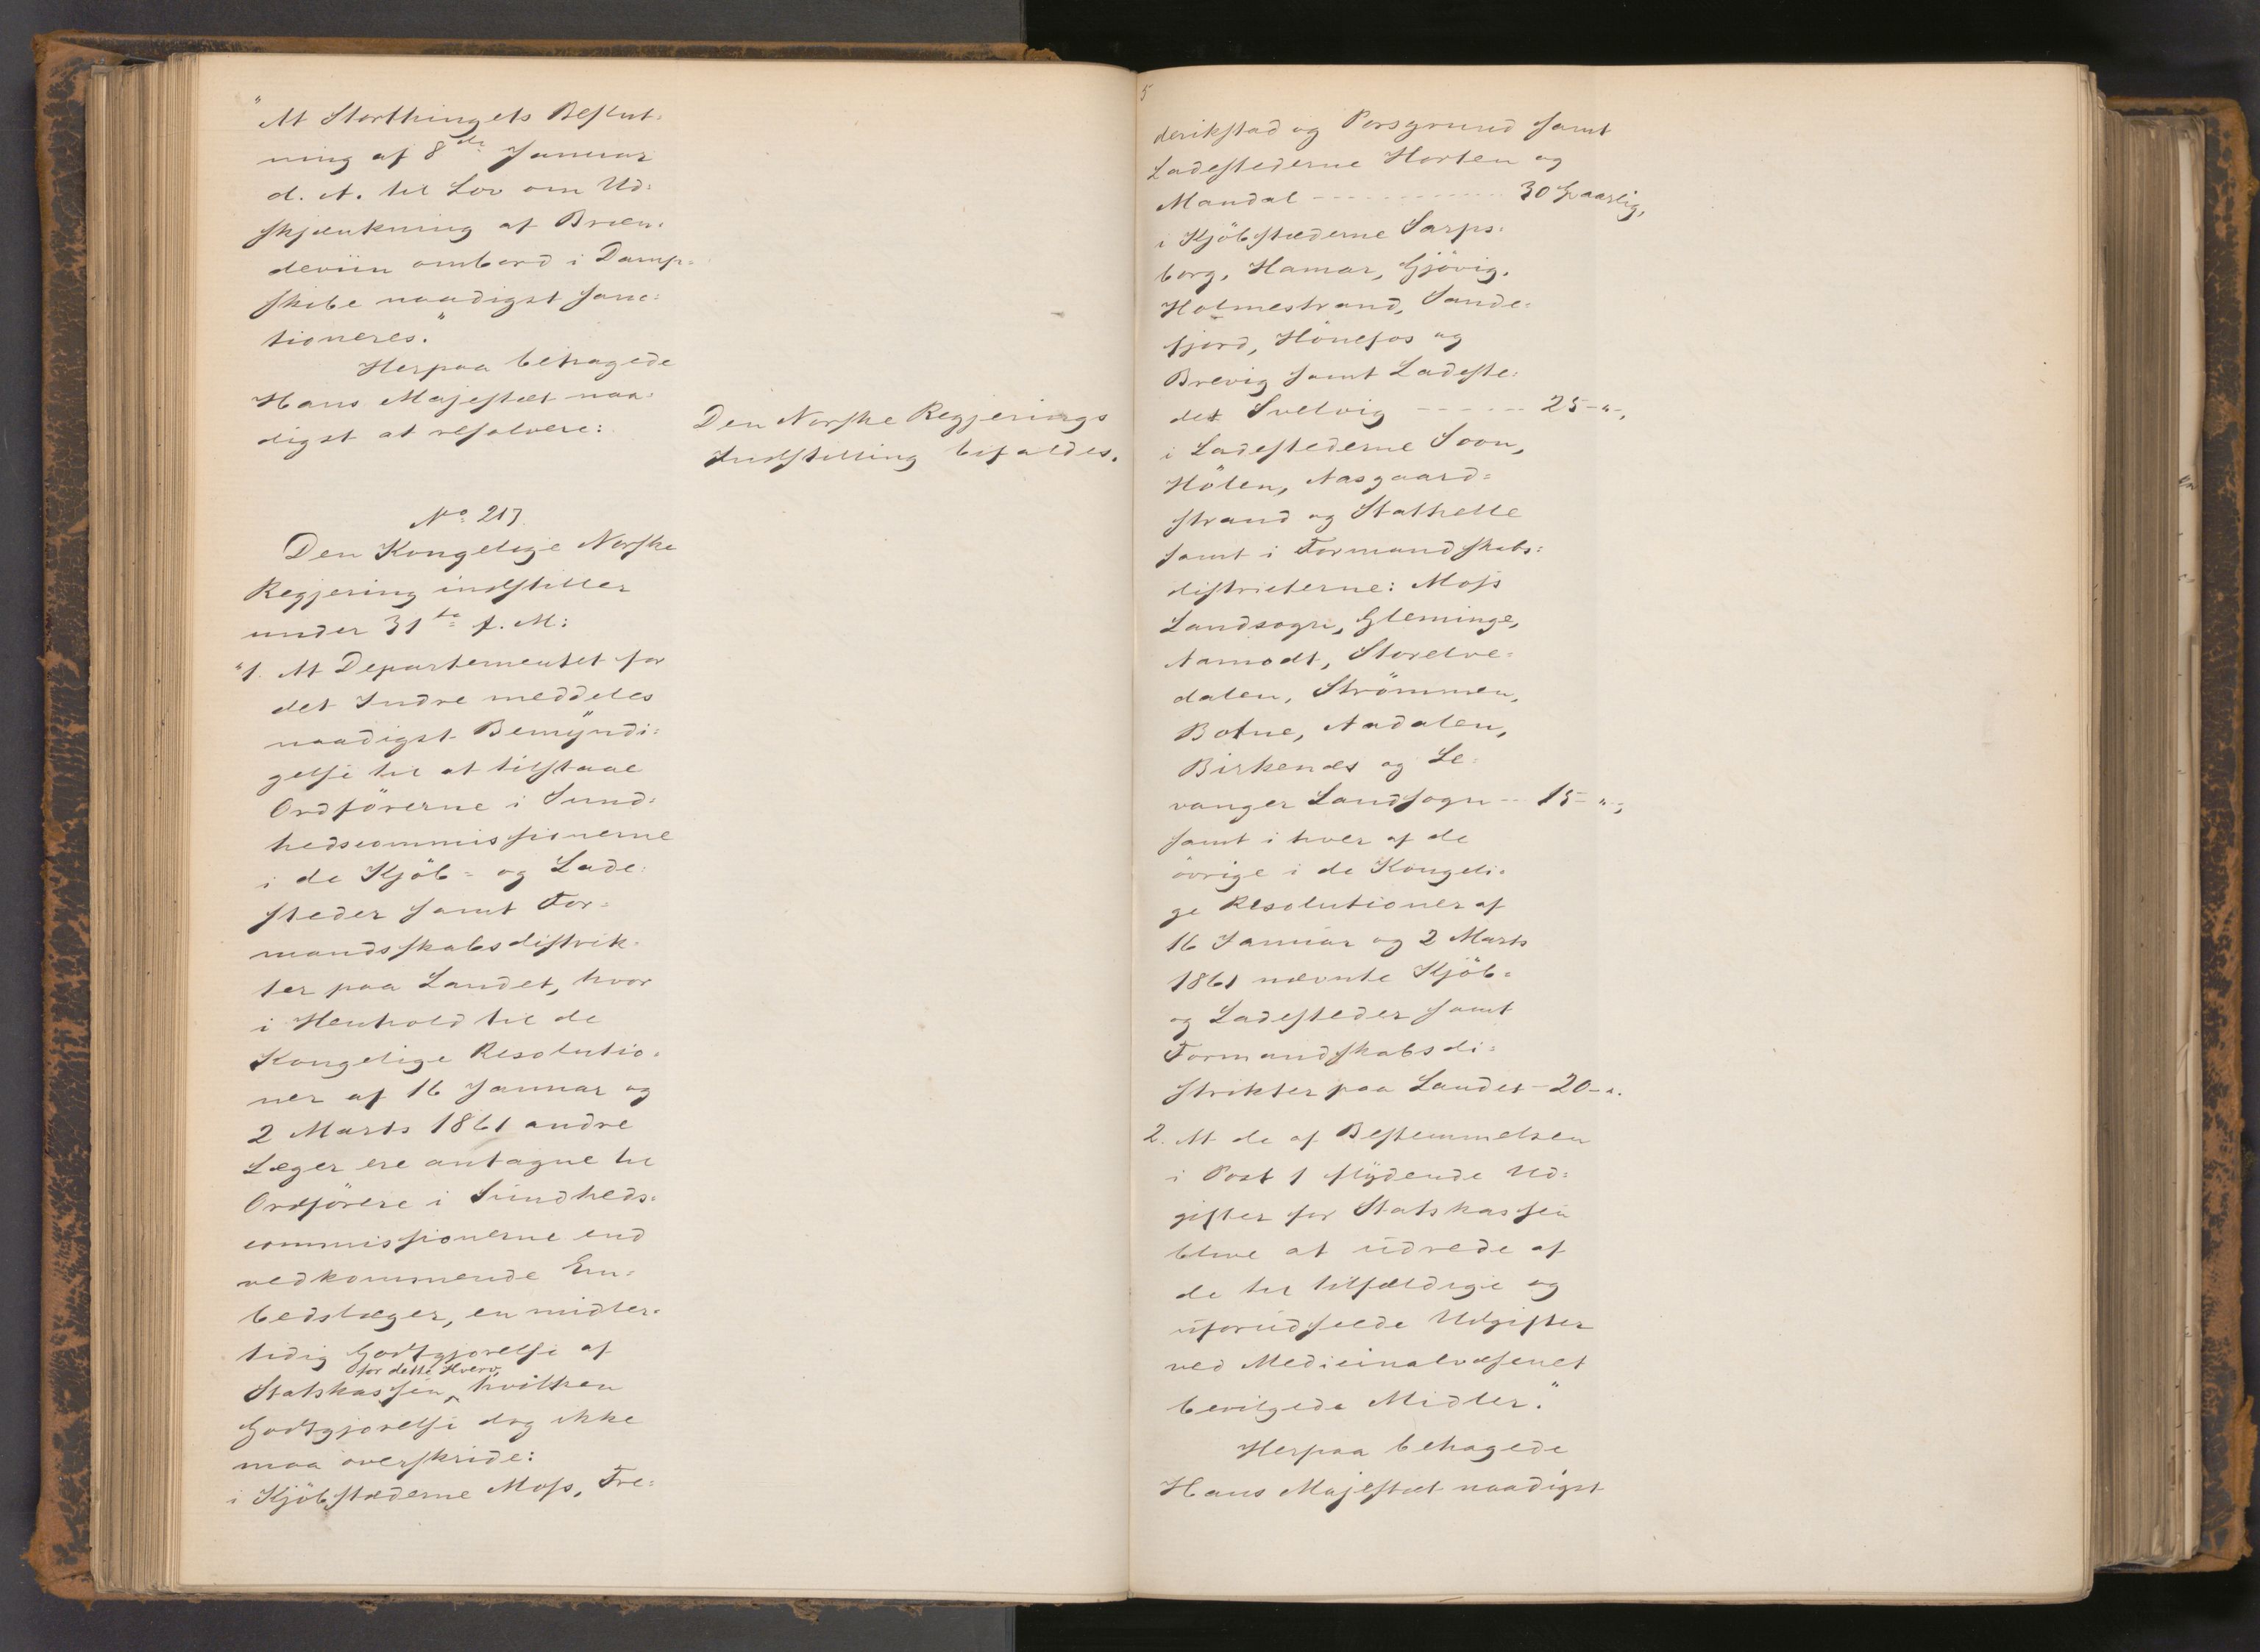 "At Storthingets Beslut=
ning af 8de Januar
d. A. til Lov om Ud=
skjænkning af Bræn=
deviin ombord i Damp=
skibe naadigst sanc=
tioneres."
Herpaa behagede
Hans Majestæt naa=
digst at resolvere:
Den Norske Regjerings
Indstilling bifaldes.
No 217.
Den Kongelige Norske
Regjering indstiller
under 31te f. M:
"1. At Departementet for
det Indre meddeles
naadigst Bemyndi=
gelse til at tilstaae
Ordförerne i Sund=
hedscommissionerne
i de Kjöb= og Lade=
steder samt For=
mandsskabsdistrik=
ter paa Landet, hvor
i Henhold til de
Kongelige Resolutio=
ner af 16 Januar og
2 Marts 1861 andre
Læger ere antagne til
Ordförere i Sundheds=
commissionerne end
vedkommende Em=
bedslæger, en midler=
tidig Godtgjörelse af
Statskassen for dette Hverv, hvilken
Godtgjörelse dog ikke
maa överskride:
i Kjöbstæderne Moss, Fre=
5
derikstad og Porsgrund samt
Ladestederne Horten og
Mandal - - - - - 30 Spd aarlig,
i Kjöbstæderne Sarps=
borg, Hamar, Gjövig,
Holmestrand, Sande=
fjord, Hönefos og
Brevig samt Ladeste=
det Svelvig - - - - - 25 - " -,
i Ladestederne Soon,
Hölen, Aasgaard=
strand og Stathelle
samt i Formandskabs=
districterne: Moss
Landsogn, Gleminge,
Aamodt, Storelve=
dalen, Strömmen,
Botne, Aadalen,
Birkenæs og Le=
vanger Landsogn - - 15 - " -,
samt i hver af de
övrige i de Kongeli=
ge Resolutioner af
16 Januar og 2 Marts
1861 nævnte Kjöb=
og Ladesteder samt
Formandskabsdi=
strikter paa Landet - 20 - ".
2. At de af Bestemmelsen
i Post 1 flydende Ud=
gifter for Statskassen
blive at udrede af
de til tilfældige og
uforudseede Udgifter
ved Medicinalvæsenet
bevilgede Midler."
Herpaa behagede
Hans Majestæt naadigst